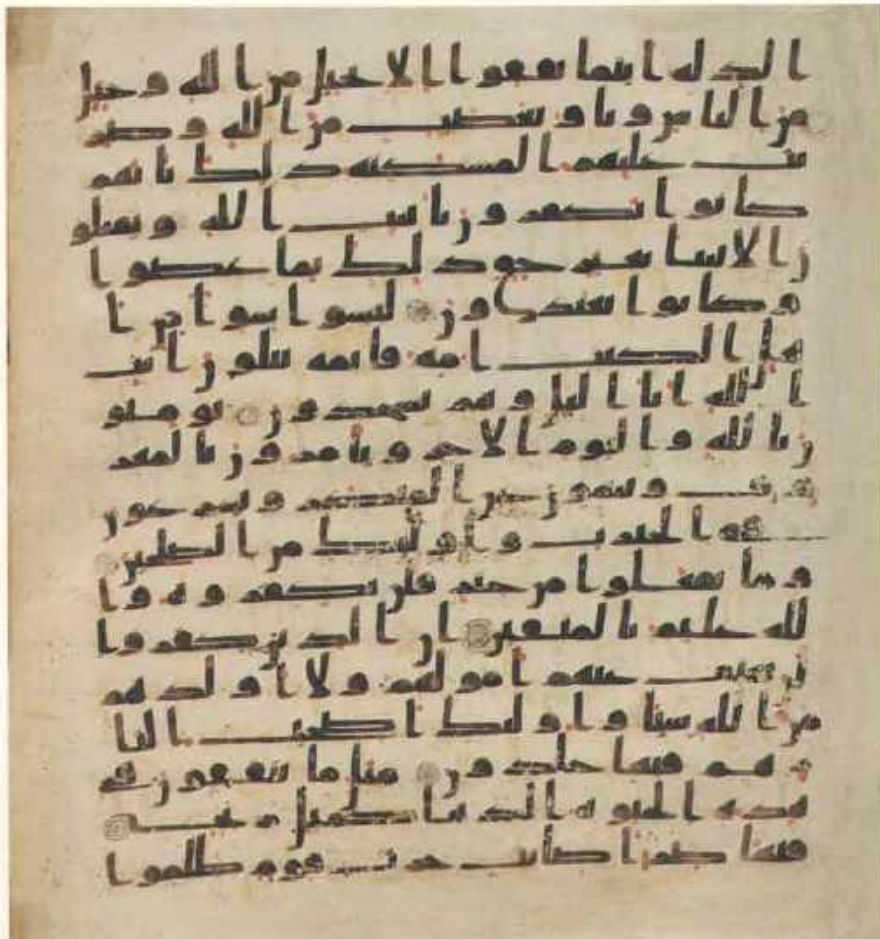 الذله اينما ثقفوا الا بحبل من الله وحبل
من الناس وباو بغضب من الله وضر
بت عليهم المسكنه ذلك بانهم
كانوا يكفرون بايت الله ويقتلو
ن الانبيا بغير حق ذلك بما عصوا
وكانوا يعتدون ليسوا سوا من ا
هل الكتب امه قائمه يتلون ايت
الله انا اليل وهم يسجدون يومنو
ن بالله واليوم الاخر ويامرون بالمعر
وف وينهون عن المنكر ويسرعون
في الخيرت واوليك من الصلحين
وما تفعلوا من خير فلن تكفروه وا
لله عليم بالمتقين ان الذين كفروا
لن تغني عنهم امولهم ولا اولدهم
من الله شيا واوليك اصحب النا
ر هم فيها خلدون مثل ما ينفقون في
هذه الحيوه الدنيا كمثل ريح
فيها صر اصابت حرث قوم ظلموا